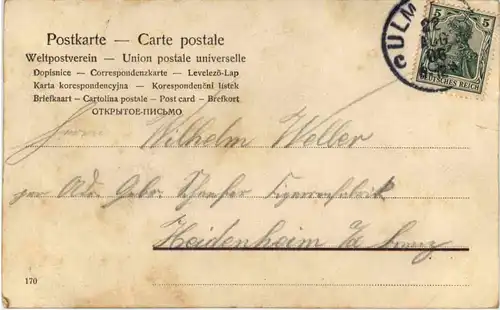 Postkarte — Carte postale
Weltpostverein — Union postale universelle
Dopisnice – Correspondenzkarte – Levelező-Lap
Karta korespondencyjna – Korespondenční lístek
Briefkaart – Cartolina postale – Post card – Brefkort
ОТКРЫТОЕ ПИСЬМО
ULM
22
AUG
06
5 5
DEUTSCHES REICH
Herrn
Wilhelm Weller
Gebr. Schaefer Zigarrenfabrik
Heidenheim a/
170